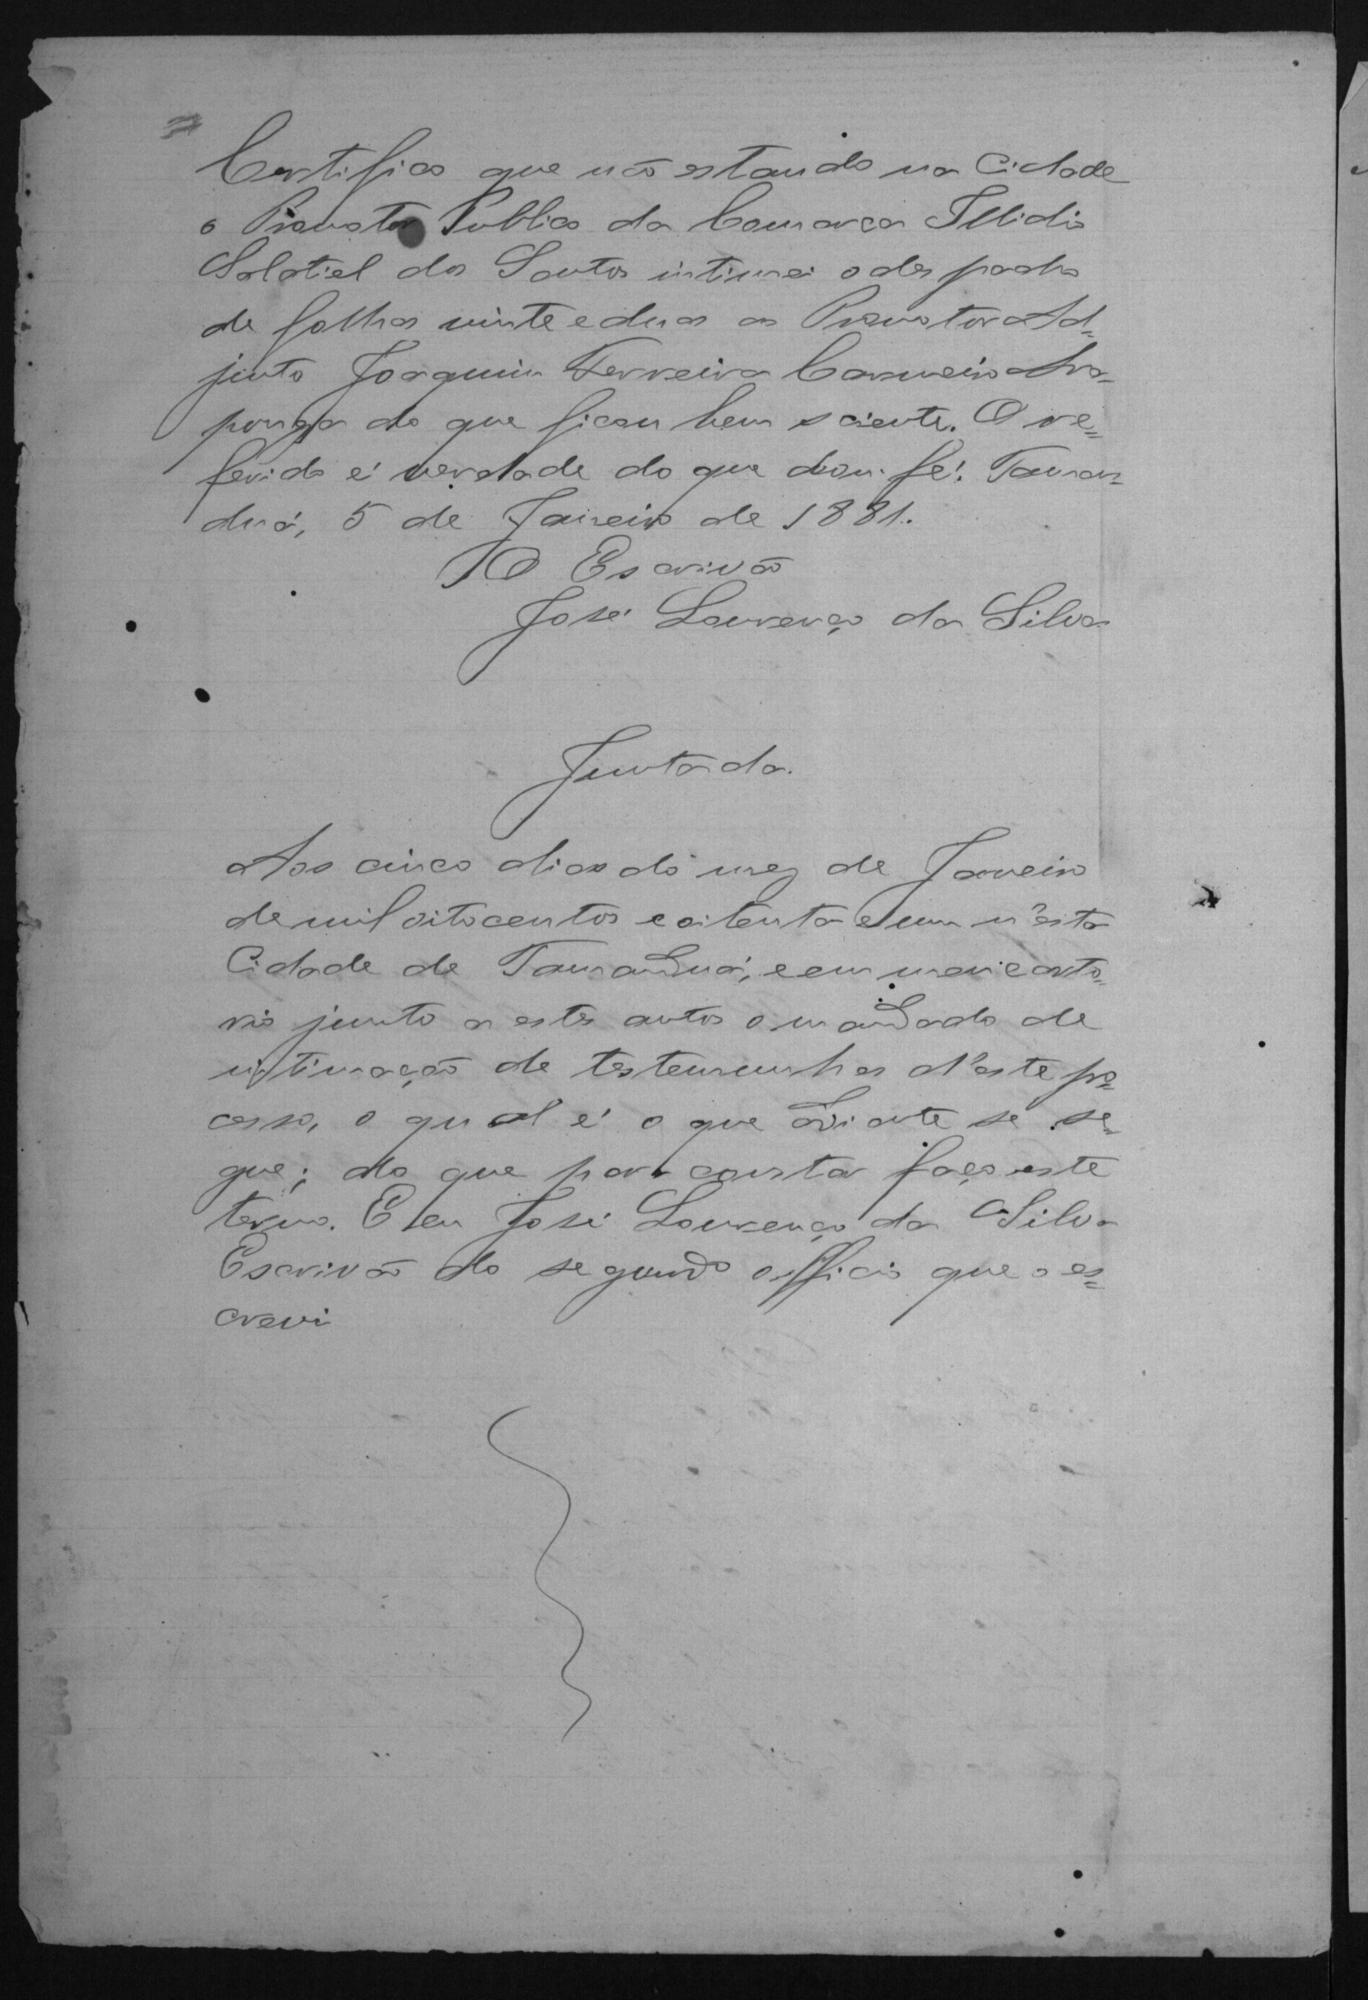 Certifico que não estando na Cidade
o Promotor Publico da Comarca Illidio
Salatiel dos Santos intimei o despacho
de folhas vinte e duas ao Promotor Ad=
junto Joaquim Ferreira Carneiro Ara=
ponga do que ficou bem sciente. O re=
ferido é verdade do que dou fé. Taman=
duá, 5 de Janeiro de 1881.
O Escrivão
José Lourenço da Silva
Juntada.
Aos cinco dias do mez de Janeiro
de mil oitocentos e oitenta e um n'esta
Cidade de Tamanduá, e em meu carto=
rio junto a estes autos o mandado de
intimação de testemunhas d'este pro=
cesso, o qual é o que adiante se se=
gue; do que para constar faço este
termo. E eu José Lourenço da Silva
Escrivão do segundo officio que o es=
crevi